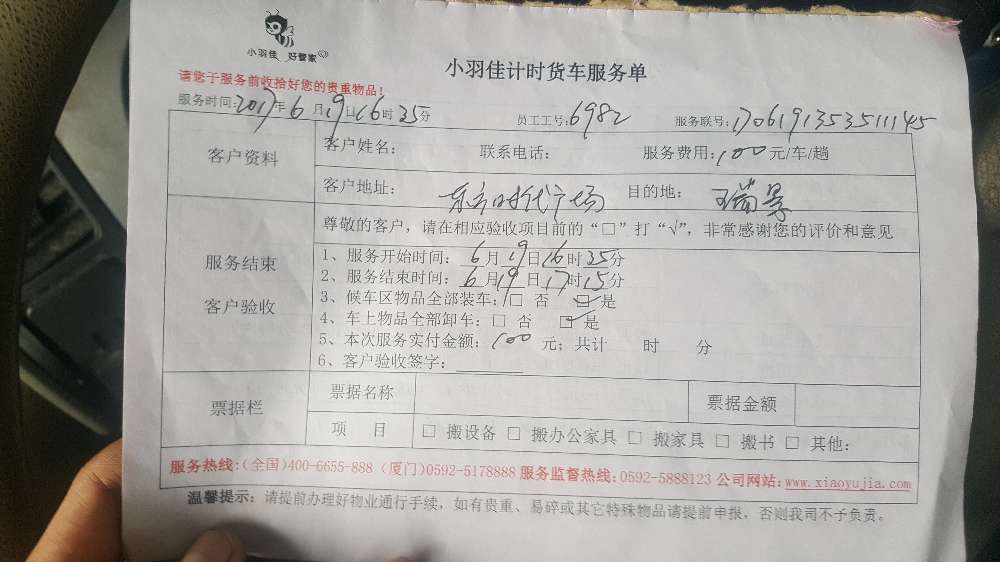 小羽佳 好管家
小羽佳计时货车服务单
请您于服务前收拾好您的贵重物品！
服务时间:2017年6月19日16时35分 员工工号:6982 服务联号:1706191353511145
客户资料
客户姓名: 联系电话: 服务费用:100元/车/趟
客户地址: 东方时代广场 目的地: 瑞景
服务结束
客户验收
尊敬的客户，请在相应验收项目前的“□”打“√”，非常感谢您的评价和意见
1、服务开始时间: 6月19日16时35分
2、服务结束时间: 6月19日17时15分
3、候车区物品全部装车: □ 否 ☑ 是
4、车上物品全部卸车: □ 否 ☑ 是
5、本次服务实付金额: 100 元; 共计 时 分
6、客户验收签字:
票据栏
票据名称 票据金额
项 目 □ 搬设备 □ 搬办公家具 □ 搬家具 □ 搬书 □ 其他:
服务热线:(全国)400-6655-888 (厦门)0592-5178888 服务监督热线:0592-5888123 公司网站:www.xiaoyujia.com
温馨提示: 请提前办理好物业通行手续，如有贵重、易碎或其它特殊物品请提前申报，否则我司不予负责。